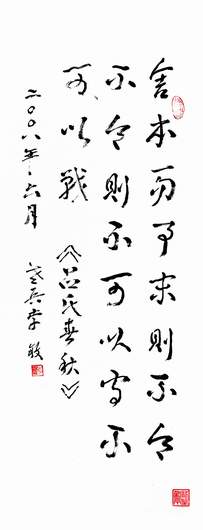 舍本而事末則不令
不令則不可以守不
可以戰《吕氏春秋》
二〇〇八年六月 兵李敏